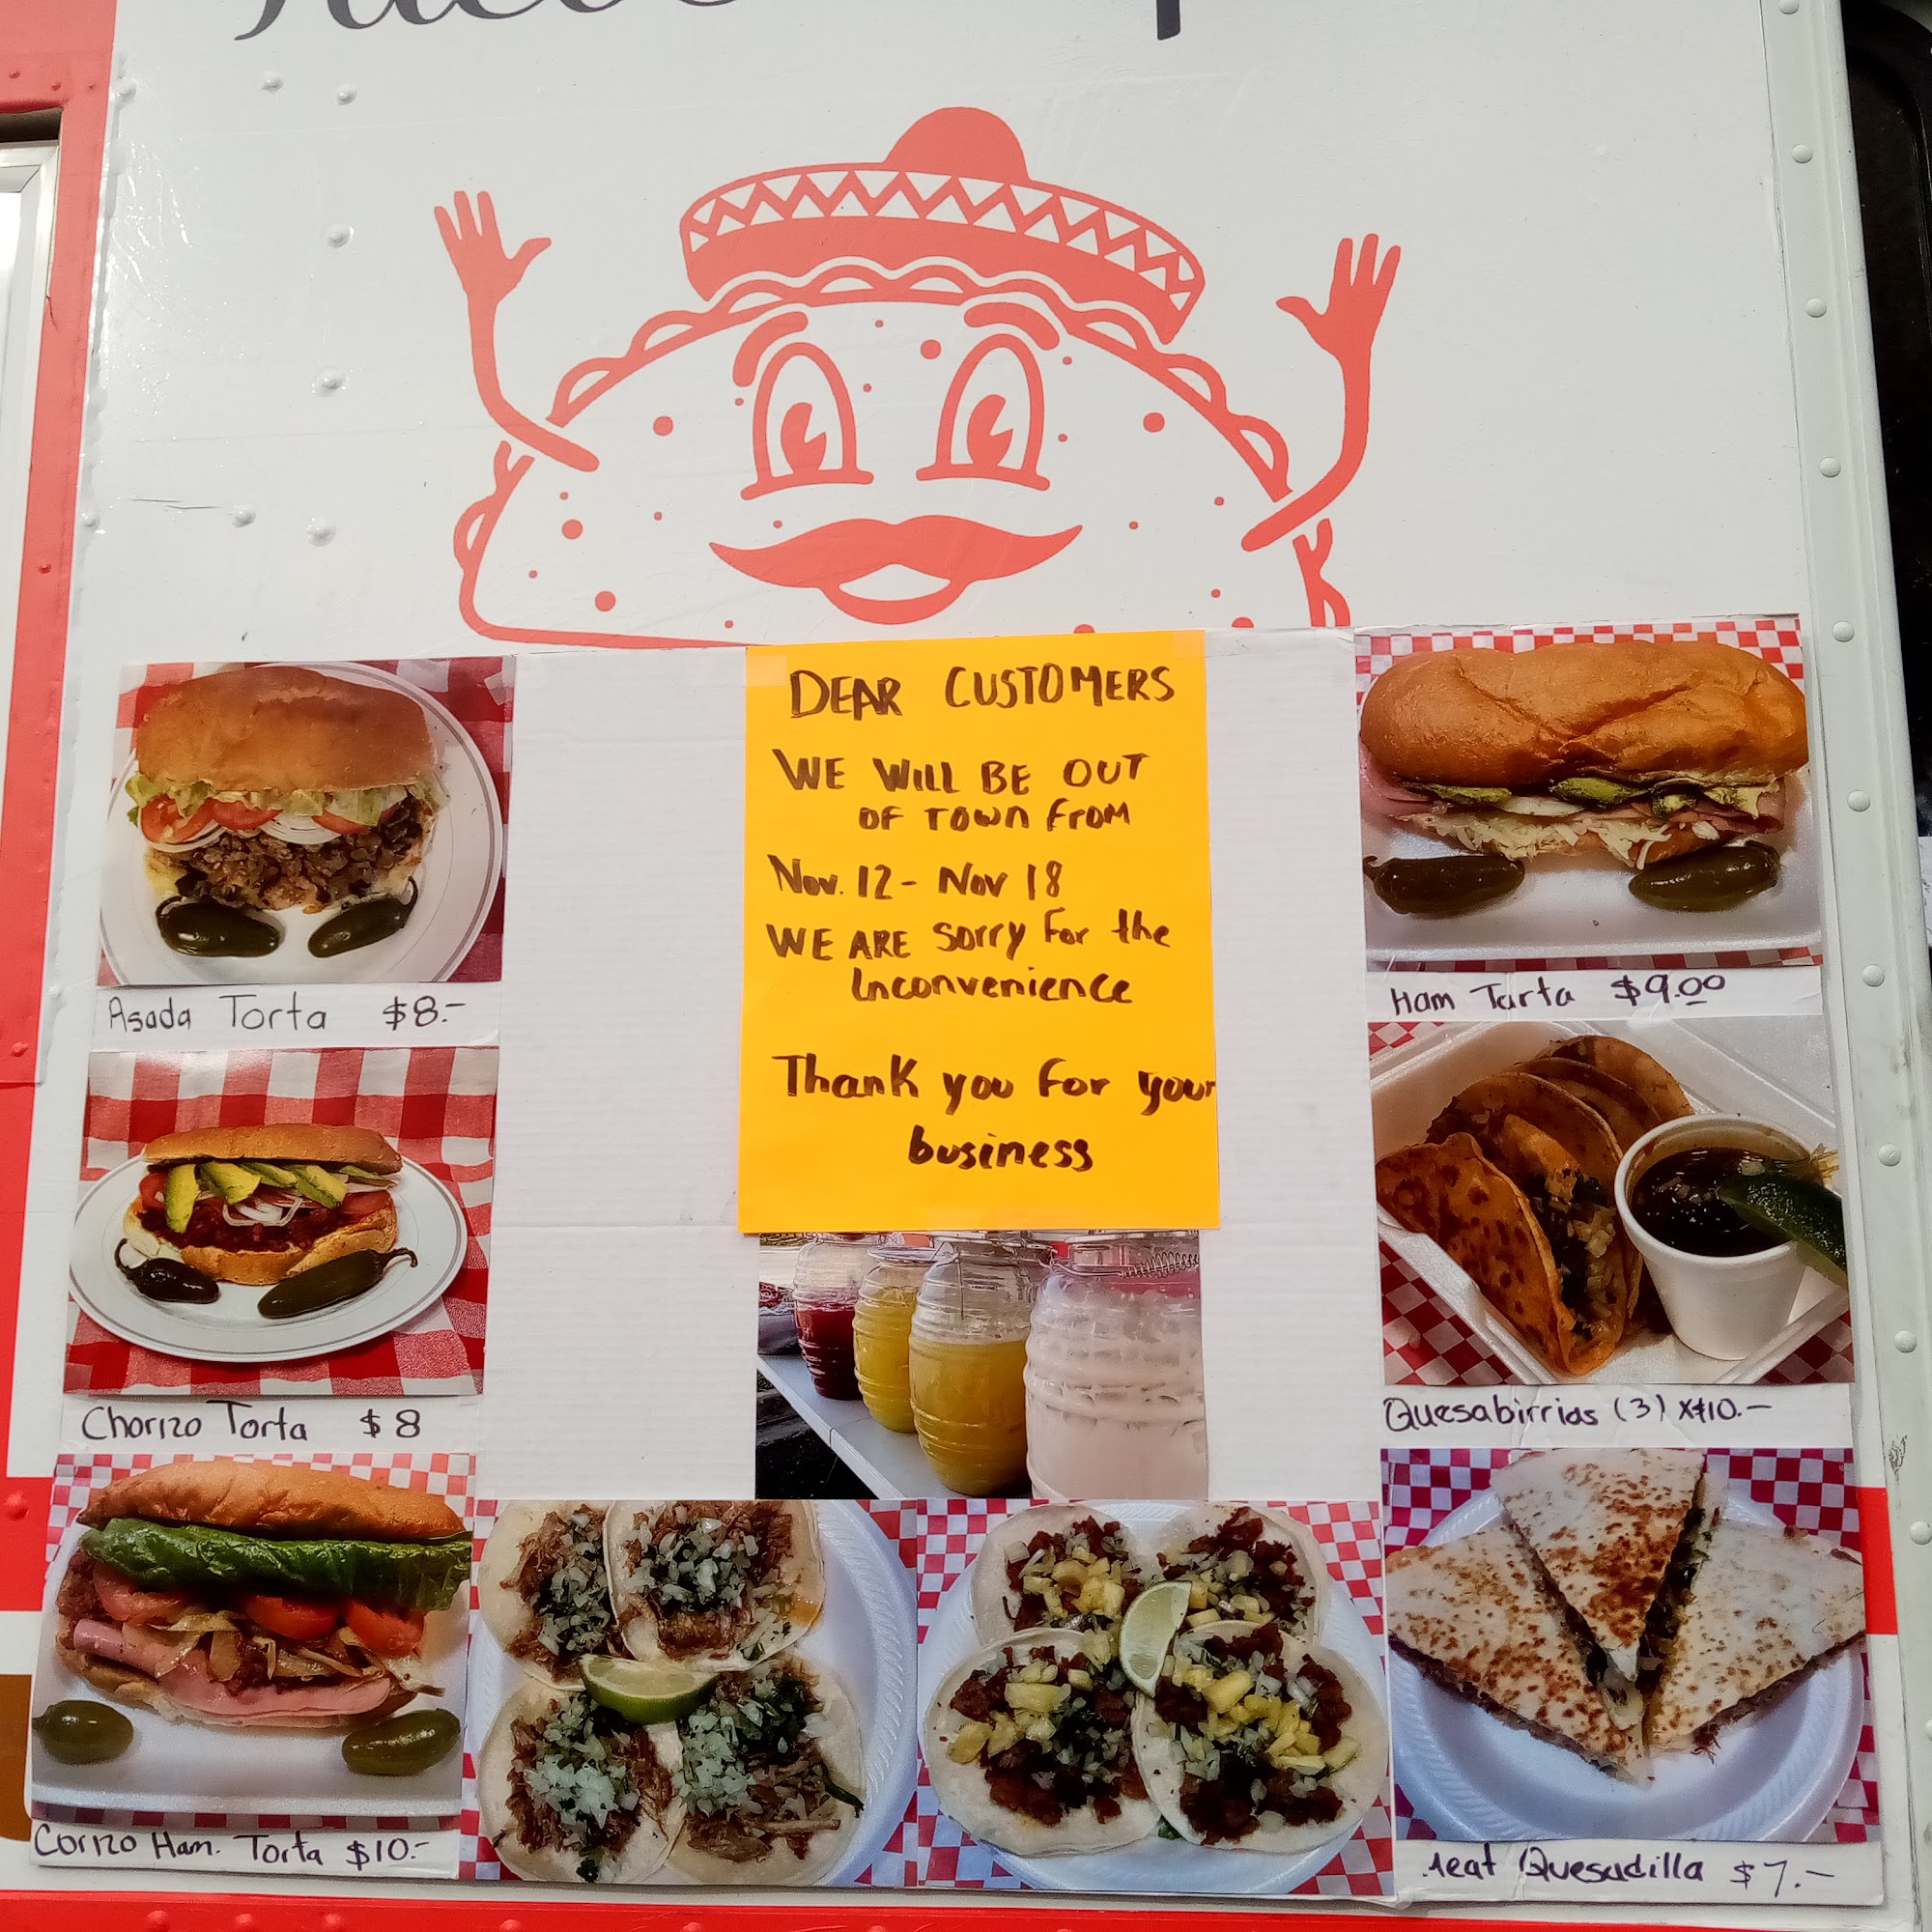 DEAR CUSTOMERS
WE WILL BE OUT
OF TOWN FROM
Nov. 12 - Nov 18
WE ARE Sorry For the
Inconvenience
Thank you For your
business
Asada Torta $8.-
Chorizo Torta $8
Corizo Ham. Torta $10.-
Ham Torta $9.00
Quesabirrias (3) x$10.-
Quesadilla $7.-